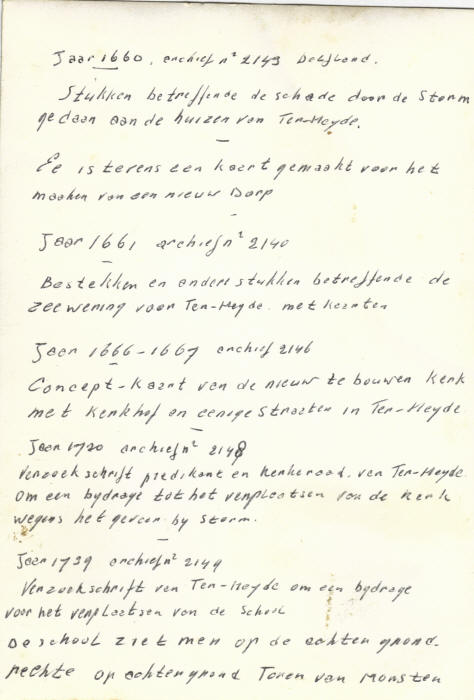 Jaar 1660, archief nº 2143 Delfland.
Stukken betreffende de schade door de Storm
gedaan aan de huizen van Ter-Heyde.
Ee is tevens een kaart gemaakt voor het
maaken van een nieuw Dorp
Jaar 1661 archief nº 2140
Bestekken en andere stukken betreffende de
zeewering voor Ter-Heyde met kaarten
Jaar 1666-1667 archief 2146
Concept-Kaart van de nieuw te bouwen Kerk
met Kerkhof en eenige Straaten in Ter-Heyde
Jaar 1720 archief nº 2148
Verzoekschrift predikant en Kerkeraad. van Ter-Heyde
om een bydrage tot het verplaatsen van de Kerk
wegens het gevaar by Storm.
Jaar 1739 archief nº 2149
Verzoekschrift van Ter-Heyde om een bydrage
voor het verplaatsen van de School
De school ziet men op de achtergrond.
rechte op achtergrond Toren van Monster